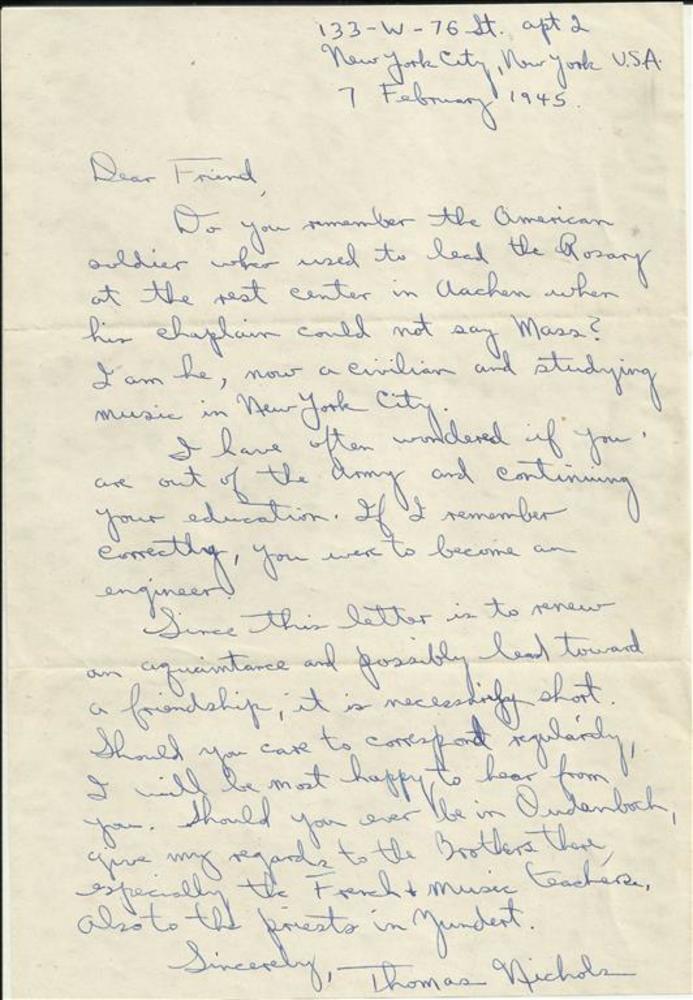 133-W-76 St. apt 2
New York City, New York U.S.A.
7 February 1945.
Dear Friend,
Do you remember the American
soldier who used to lead the Rosary
at the rest center in Aachen when
his chaplain could not say Mass?
I am he, now a civilian and studying
music in New York City.
I have often wondered if you
are out of the Army and continuing
your education. If I remember
correctly, you were to become an
engineer.
Since this letter is to renew
an aquaintance and possibly lead toward
a friendship, it is necessarily short.
Should you care to correspond regularly,
I will be most happy to hear from
you. Should you ever be in Oudenbosch,
give my regards to the Brothers there,
especially the French & music teachers,
also to the priests in Zundert.
Sincerely, Thomas Nichols